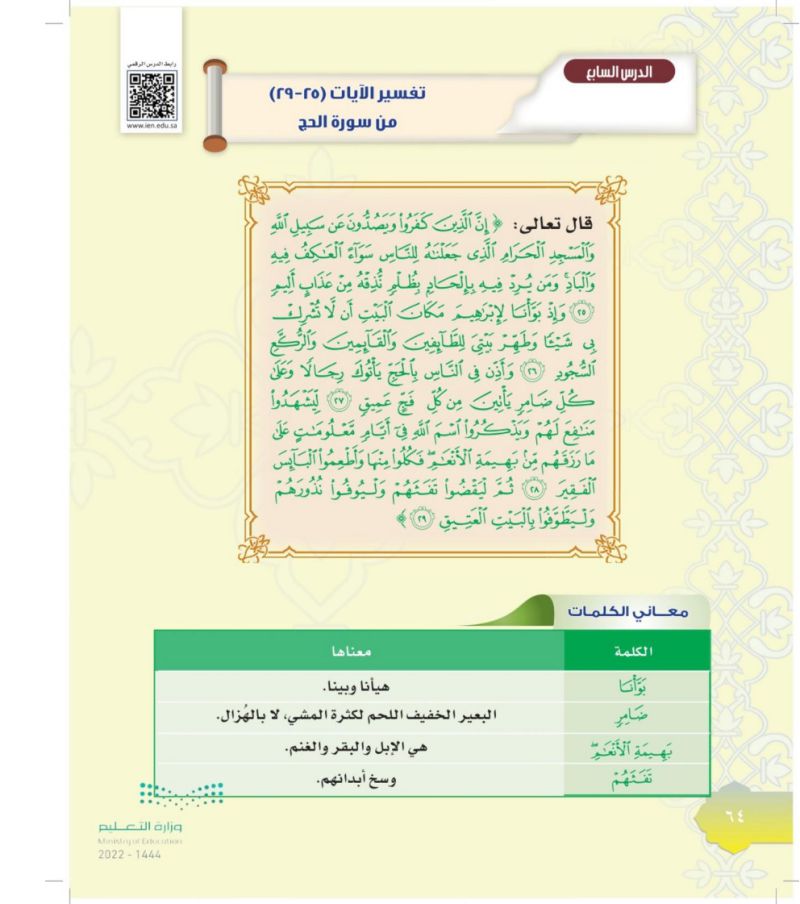 رابط الدرس الرقمي
www.ien.edu.sa
الدرس السابع
تفسير الآيات (٢٥-٢٩)
من سورة الحج
قال تعالى: ﴿ إِنَّ الَّذِينَ كَفَرُوا۟ وَيَصُدُّونَ عَن سَبِيلِ اللَّهِ
وَالْمَسْجِدِ الْحَرَامِ الَّذِى جَعَلْنَٰهُ لِلنَّاسِ سَوَآءً الْعَٰكِفُ فِيهِ
وَالْبَادِ ۚ وَمَن يُرِدْ فِيهِ بِإِلْحَادٍۭ بِظُلْمٍ نُّذِقْهُ مِنْ عَذَابٍ أَلِيمٍ
٢٥ وَإِذْ بَوَّأْنَا لِإِبْرَٰهِيمَ مَكَانَ الْبَيْتِ أَن لَّا تُشْرِكْ
بِى شَيْـًٔا وَطَهِّرْ بَيْتِىَ لِلطَّآئِفِينَ وَالْقَآئِمِينَ وَالرُّكَّعِ
السُّجُودِ ٢٦ وَأَذِّن فِى النَّاسِ بِالْحَجِّ يَأْتُوكَ رِجَالًا وَعَلَىٰ
كُلِّ ضَامِرٍ يَأْتِينَ مِن كُلِّ فَجٍّ عَمِيقٍ ٢٧ لِّيَشْهَدُوا۟
مَنَٰفِعَ لَهُمْ وَيَذْكُرُوا۟ اسْمَ اللَّهِ فِىٓ أَيَّامٍ مَّعْلُومَٰتٍ عَلَىٰ
مَا رَزَقَهُم مِّنۢ بَهِيمَةِ الْأَنْعَٰمِ ۖ فَكُلُوا۟ مِنْهَا وَأَطْعِمُوا۟ الْبَآئِسَ
الْفَقِيرَ ٢٨ ثُمَّ لْيَقْضُوا۟ تَفَثَهُمْ وَلْيُوفُوا۟ نُذُورَهُمْ
وَلْيَطَّوَّفُوا۟ بِالْبَيْتِ الْعَتِيقِ ٢٩ ﴾
معـاني الكلمات
الكلمة معناها
بَوَّأْنَا هيأنا وبينا.
ضَامِرٍ البعير الخفيف اللحم لكثرة المشي، لا بالهُزال.
بَهِيمَةِ الْأَنْعَٰمِ ۖ هي الإبل والبقر والغنم.
تَفَثَهُمْ وسخ أبدانهم.
٦٤
وزارة التعـليم
Ministry of Education
2022 - 1444